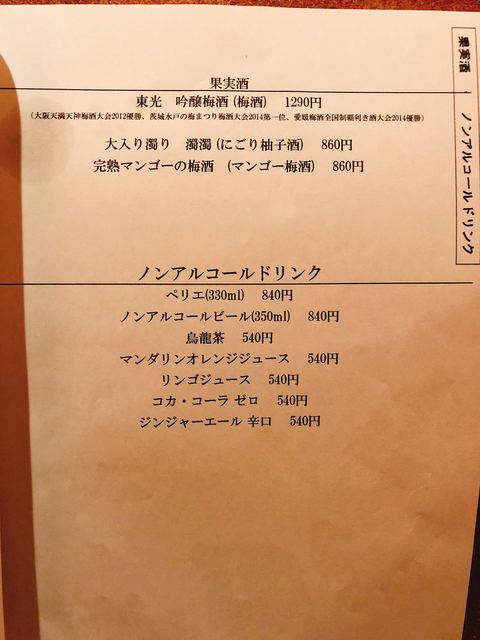 果実酒 ・ ノンアルコールドリンク
果実酒
東光　吟醸梅酒 (梅酒)　1290円
(大阪天満天神梅酒大会2012優勝、茨城水戸の梅まつり梅酒大会2014第一位、愛媛梅酒全国制覇利き酒大会2014優勝)
大入り濁り　濁濁 (にごり柚子酒)　860円
完熟マンゴーの梅酒　(マンゴー梅酒)　860円
ノンアルコールドリンク
ペリエ(330ml)　840円
ノンアルコールビール(350ml)　840円
烏龍茶　540円
マンダリンオレンジジュース　540円
リンゴジュース　540円
コカ・コーラ ゼロ　540円
ジンジャーエール 辛口　540円